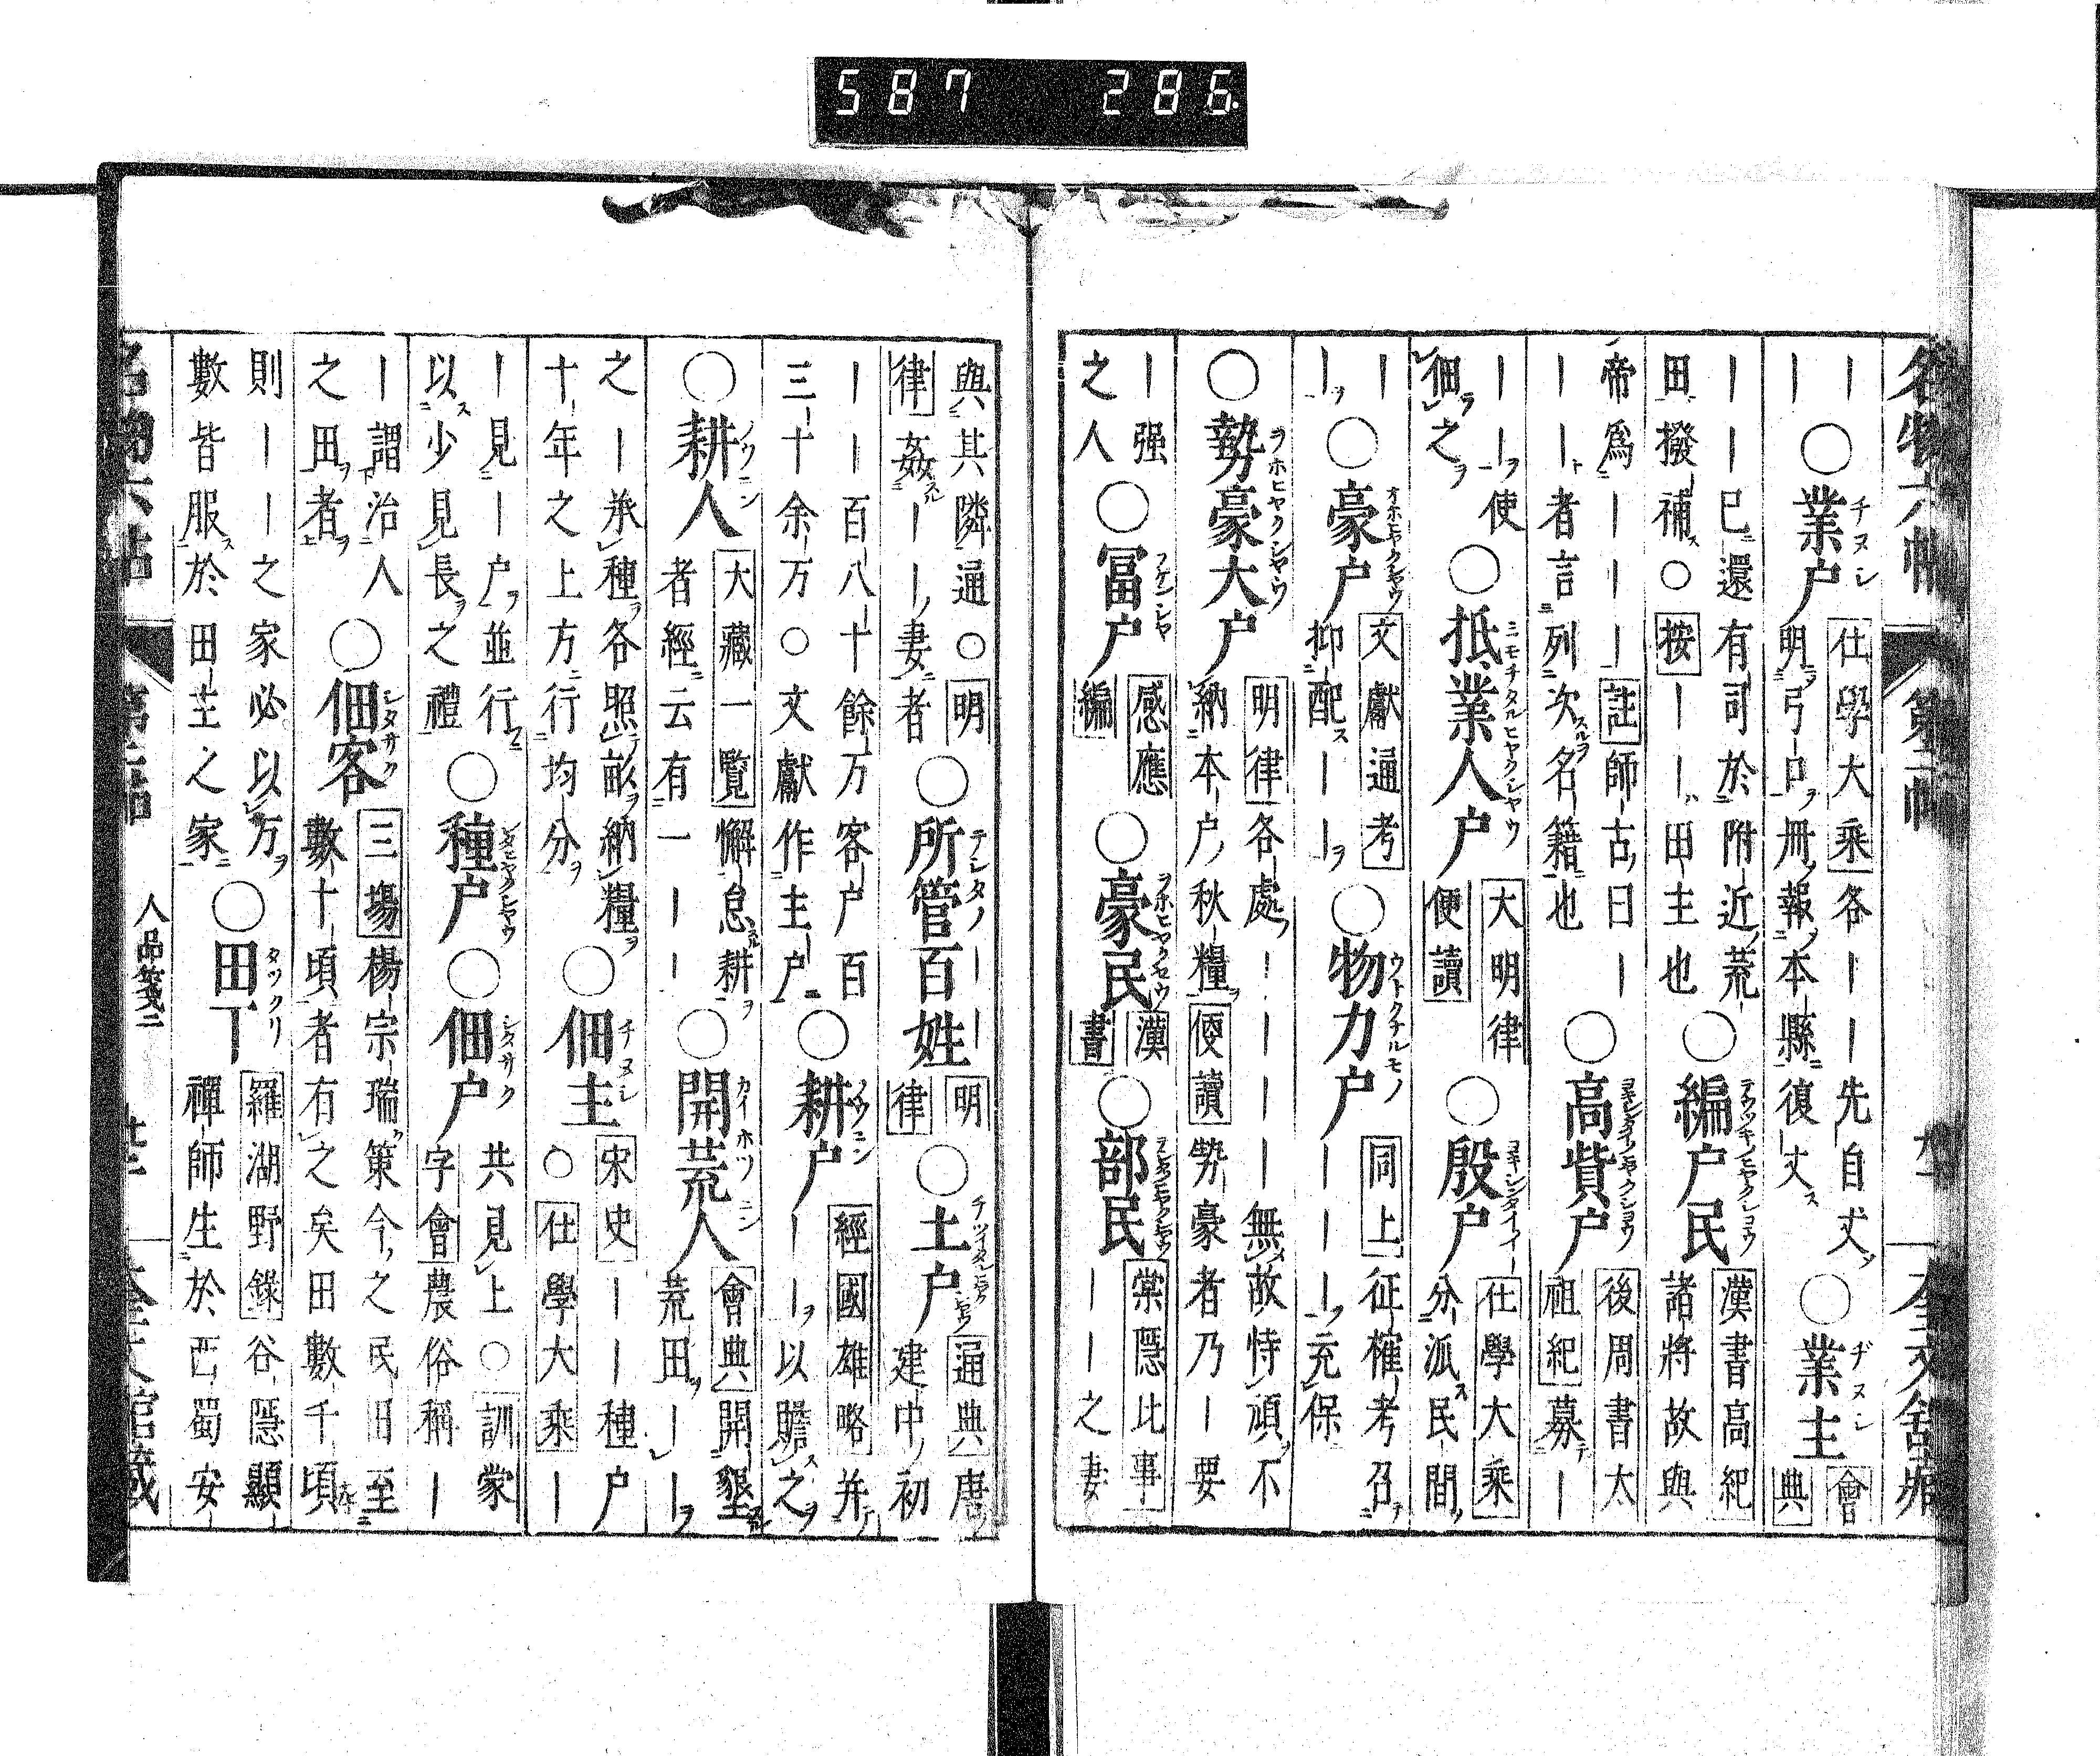 587 286.
｜○業戸 仕學大乘各｜｜先自丈
｜ 明弓口冊報本縣復丈○業主 會典
｜｜已還有司於附近荒
田撥補○按｜｜｜田主也○編戸民 漢書高紀諸將故與
帝爲｜｜｜註師古曰｜
｜｜者言列次名籍也○高貲戸 後周書太祖紀募｜
｜｜使
佃之○抵業人戸 大明律便讀○殷戸 仕學大乘分派民間
｜○豪戸 文獻通考
｜ 抑配｜｜○物力戸 同上征榷考召｜｜｜充保
○勢豪大戸 明律各處｜｜｜｜無故恃頑不
納本戸秋糧便讀勢豪者乃｜要
｜强
之人○冨戸 感應編○豪民 漢書○部民 棠隱比事｜｜之妻
與其隣通○明
律姦｜｜妻者○所管百姓 明律○土戸 通典唐建中初
｜｜百八十餘万客戸百
三十余万○文獻作主戸○耕戸 經國雄略并｜｜以贍之
○耕人 大藏一覽懈怠耕
者經云有一｜｜○開荒人 會典開墾荒田｜｜
之｜承種各照畝納糧
十年之上方行均分○佃主 宋史｜｜種戸○仕學大乘｜
｜見｜戸並行
以少見長之禮○種戸○佃戸 共見上○訓蒙字會農俗稱｜
｜謂治人
之田者○佃客 三場楊宗瑞策今之民田至
數十頃者有之矣田數千頃
則｜｜之家必以万
數皆服於田主之家○田丁 羅湖野錄谷隱顯禪師生於西蜀安
人品箋二